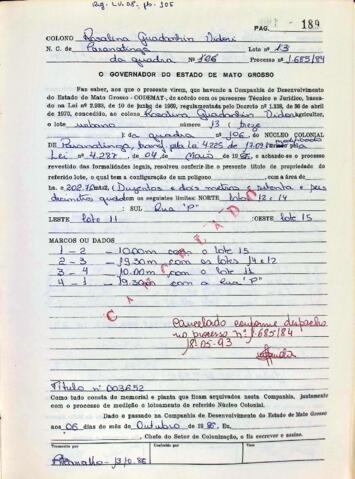 Reg. Lv. 08 - fls. 105
PAG. 189
COLONO Rosalina Guadanhin Vidori
N. C. de Paranatinga Lote nº 13
da quadra nº 106 Processo nº 1.685/84
O GOVERNADOR DO ESTADO DE MATO GROSSO
Faz saber, aos que o presente virem, que havendo a Companhia de Desenvolvimento
do Estado de Mato Grosso - CODEMAT-, de acôrdo com os pareceres Técnico e Jurídico, baseado
na Lei nº 2.933, de 10 de junho de 1969, regulamentada pelo Decreto nº 1.238, de de abril
de 1970, concedido, ao colono Rosalina Guadanhin Vidori
o lote urbano nº 13 treze
da quadra nº 106, do NÚCLEO COLONIAL
DE Paranatinga, pela Lei 4.225 de 17.09
Lei nº 4.287, de 04 de Maio 1985, e achando-se o processo
revestido das formalidades legais, resolveu conferir-lhe o presente título de propriedade do
referido lote, o qual tem a configuração de um polígono com a área de
202,76m2, (Duzentos e dois metros e setenta e seis
decímetros quadrados) com os seguintes limites: NORTE lotes 12 e 14
: SUL Rua "P"
LESTE lote 11 :OESTE lote 15
MARCOS OU DADOS
1 - 2 - 10.00m com o lote 15
2 - 3 - 19.30m com os lotes 14 e 12
3 - 4 - 10.00m com o lote 11
4 - 1 - 19.30m com a Rua "P"
CANCELADO
Cancelado conforme despacho
no processo nº 1.685/84
18.05-93
Título nº 003652
Como tudo consta do memorial e planta que ficam arquivados nesta Companhia, juntamente
com o processo de medição e loteamento do referido Núcleo Colonial.
Dado e passado na Companhia de Desenvolvimento do Estado de Mato Grosso
aos 06 dias do mês de Outubro de 1986. Eu,
, Chefe do Setor de Colonização, o fiz escrever e assino.
Transcrito por Conferido por Visto
13/10.86